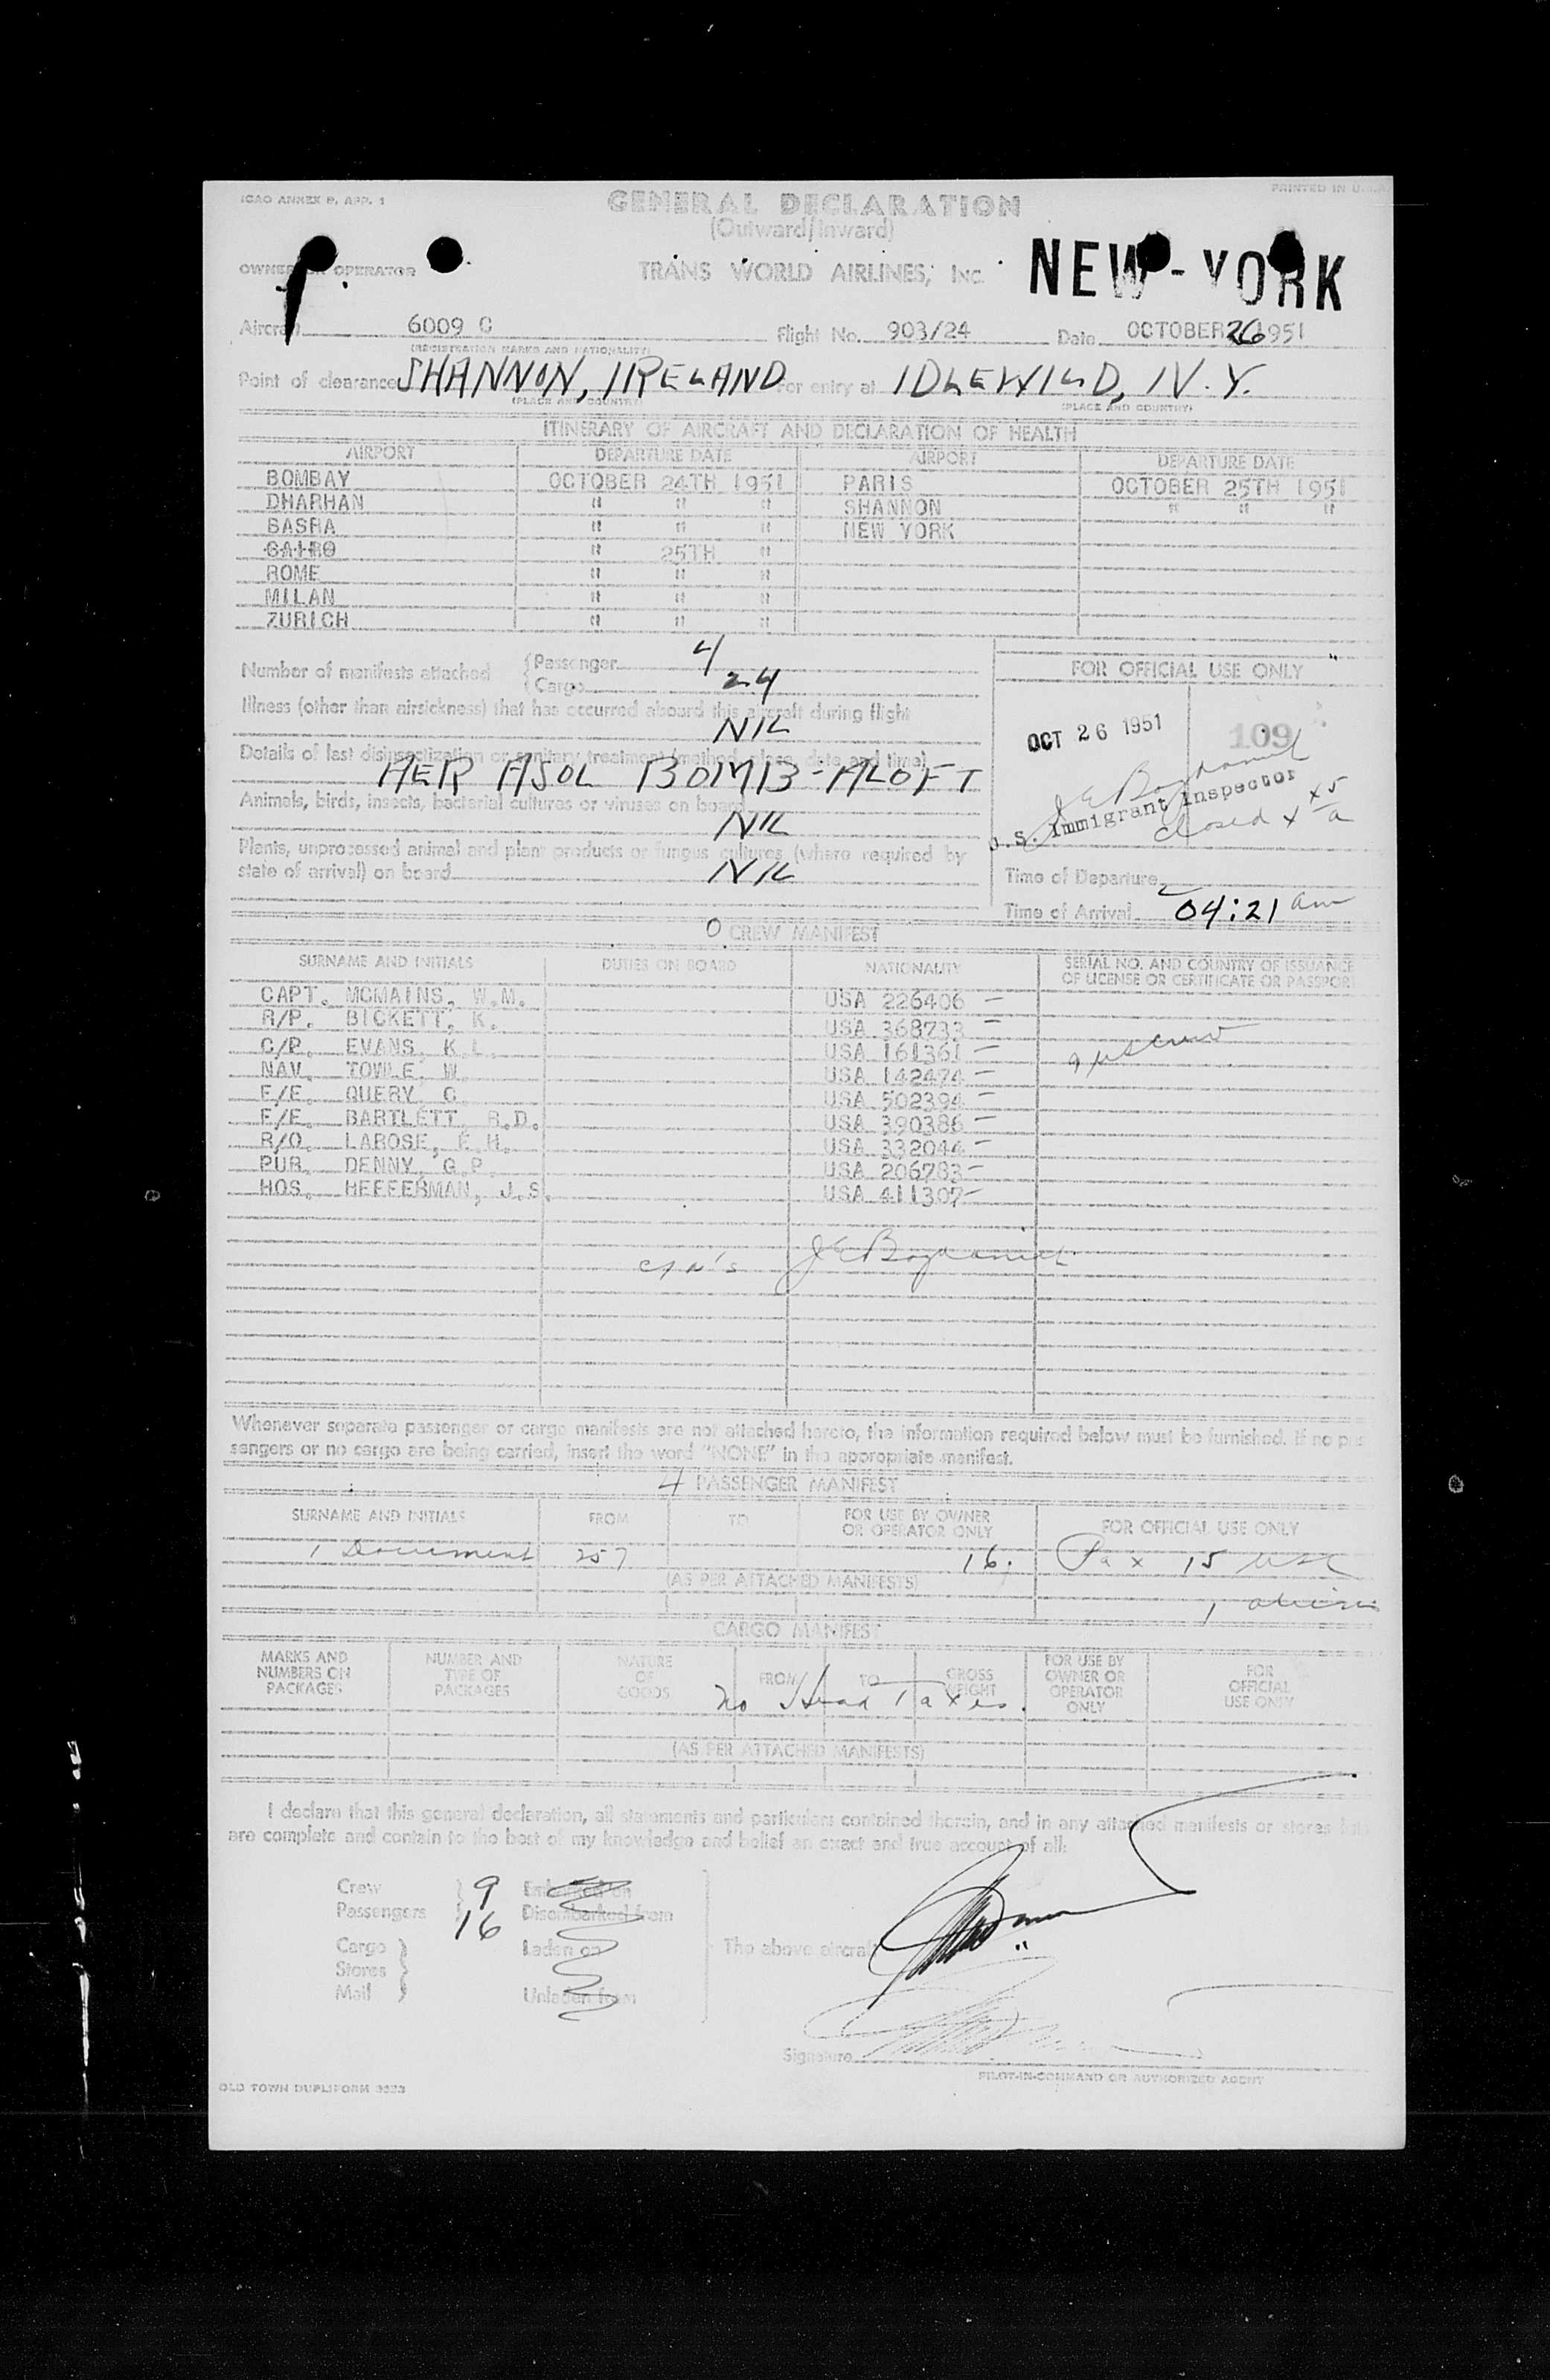 ICAO ANNEX 9, APP. 1
PRINTED IN U.S.A.
GENERAL DECLARATION
(Outward/Inward)
OWNER OR OPERATOR
TRANS WORLD AIRLINES, INC.
NEW-YORK
Aircraft 6009 C Flight No. 903/24 Date OCTOBER 26 1951
(REGISTRATION MARKS AND NATIONALITY)
Point of clearance SHANNON, IRELAND For entry at IDLEWILD, N.Y.
(PLACE AND COUNTRY) (PLACE AND COUNTRY)
ITINERARY OF AIRCRAFT AND DECLARATION OF HEALTH
AIRPORT DEPARTURE DATE AIRPORT DEPARTURE DATE
BOMBAY OCTOBER 24TH 1951 PARIS OCTOBER 25TH 1951
DHARHAN " " " SHANNON " " "
BASRA " " " NEW YORK
CAIRO " 25TH "
ROME " " "
MILAN " " "
ZURICH " " "
Number of manifests attached
Passenger 4
Cargo 24
FOR OFFICIAL USE ONLY
Illness (other than airsickness) that has occurred aboard this aircraft during flight
NIL
OCT 26 1951 109
Details of last disinsectization or sanitary treatment (method, place, date and time)
AER ASOL BOMB-ALOFT
U.S. Immigrant Inspector
closed
Animals, birds, insects, bacterial cultures or viruses on board
NIL
Plants, unprocessed animal and plant products or fungus cultures (where required by
state of arrival) on board NIL
Time of Departure
Time of Arrival 04:21 am
0 CREW MANIFEST
SURNAME AND INITIALS DUTIES ON BOARD NATIONALITY SERIAL NO. AND COUNTRY OF ISSUANCE
OF LICENSE OR CERTIFICATE OR PASSPORT
CAPT. MCMAINS, W.M. USA 226406 -
R/P. BICKETT, K. USA 368733 -
C/P. EVANS, K.L. USA 161361 -
NAV. TOWLE, W. USA 142474 -
F/E. QUERY, C. USA 502394 -
F/E. BARTLETT, R.D. USA 390386 -
R/O. LAROSE, E.H. USA 332044 -
PUR. DENNY, G.P. USA 206783 -
HOS. HEFFERMAN, J.S. USA 411307 -
Whenever separate passenger or cargo manifests are not attached hereto, the information required below must be furnished. If no pas
sengers or no cargo are being carried, insert the word "NONE" in the appropriate manifest.
4 PASSENGER MANIFEST
SURNAME AND INITIALS FROM TO FOR USE BY OWNER
OR OPERATOR ONLY FOR OFFICIAL USE ONLY
1 Document 257 16. Pax 15 usc
(AS PER ATTACHED MANIFESTS)
1 alien
CARGO MANIFEST
MARKS AND
NUMBERS ON
PACKAGES
NUMBER AND
TYPE OF
PACKAGES
NATURE
OF
GOODS
FROM TO GROSS
WEIGHT
FOR USE BY
OWNER OR
OPERATOR
ONLY
FOR
OFFICIAL
USE ONLY
No Head Taxes.
(AS PER ATTACHED MANIFESTS)
I declare that this general declaration, all statements and particulars contained therein, and in any attached manifests or stores list
are complete and contain to the best of my knowledge and belief an exact and true account of all:
Crew 9 Embarked on
Passengers 16 Disembarked from
Cargo Laden on The above aircraft
Stores
Mail Unladen from
Signature
PILOT-IN-COMMAND OR AUTHORIZED AGENT
OLD TOWN DUPLIFORM 3523